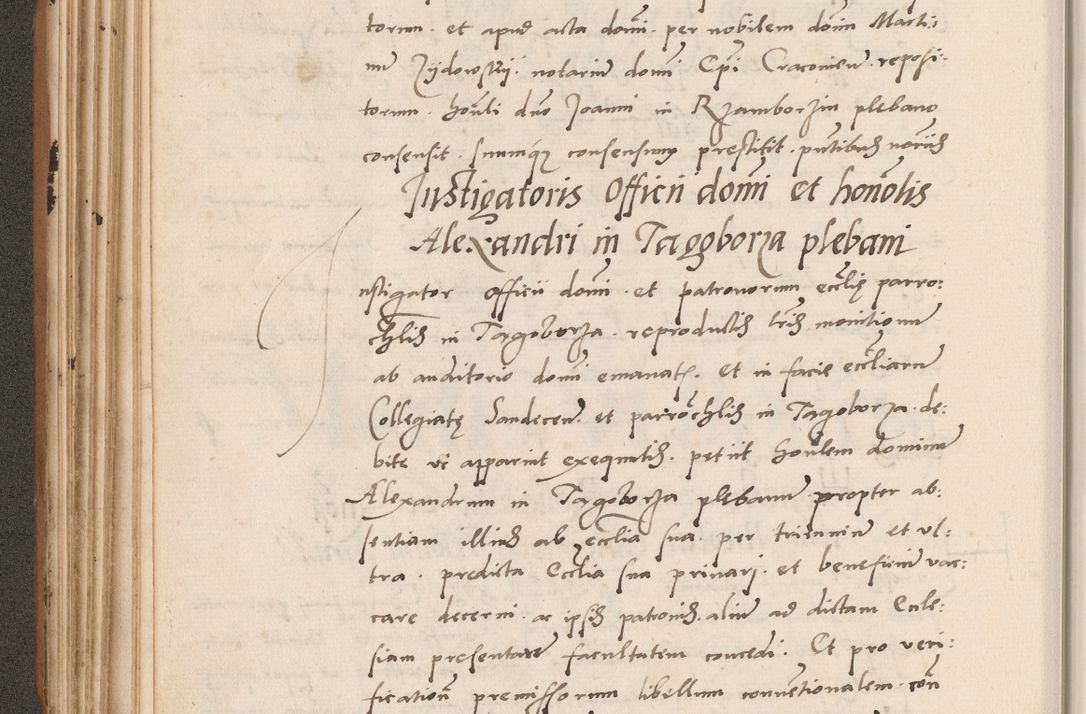 torum. et apud acta domi. per nobilem dom̄ Marti:
num Zydowsky. notarium domi Ep̄i Cracovien. reposi:
torum. hon̄li duo Joanni in Rzamborzin plebano
consensit. suumq̨ consensum prestitit. pn̄tibus nor̄iis
Instigatoris Officii domi et honōlis
Alexandri in Tagoborza plebani
Instigator officii domi. et patronorum eccl̄ię parro:
chl̄is in Tagoborza. reproductis l̄ris monitionum
ab auditorio domi emanat. et in facie eccl̄iarum
Collegiatę Sandecen. et parrōchlis in Tagoborza. de:
bite ut apparuit exequutis. petiit honl̄em dominum
Alexandrum in Tagoborza plebanum propter ab:
sentiam illius ab eccl̄ia sua per triennium et ul:
tra. predicta Eccl̄ia sua privari. et beneficium vac:
care decerni. ac ipsis patronis. alium ad dictam Eccle:
siam presentare facultatem concedi. Et pro veri:
fication̄ premissorum libellum conventionalem. con̄